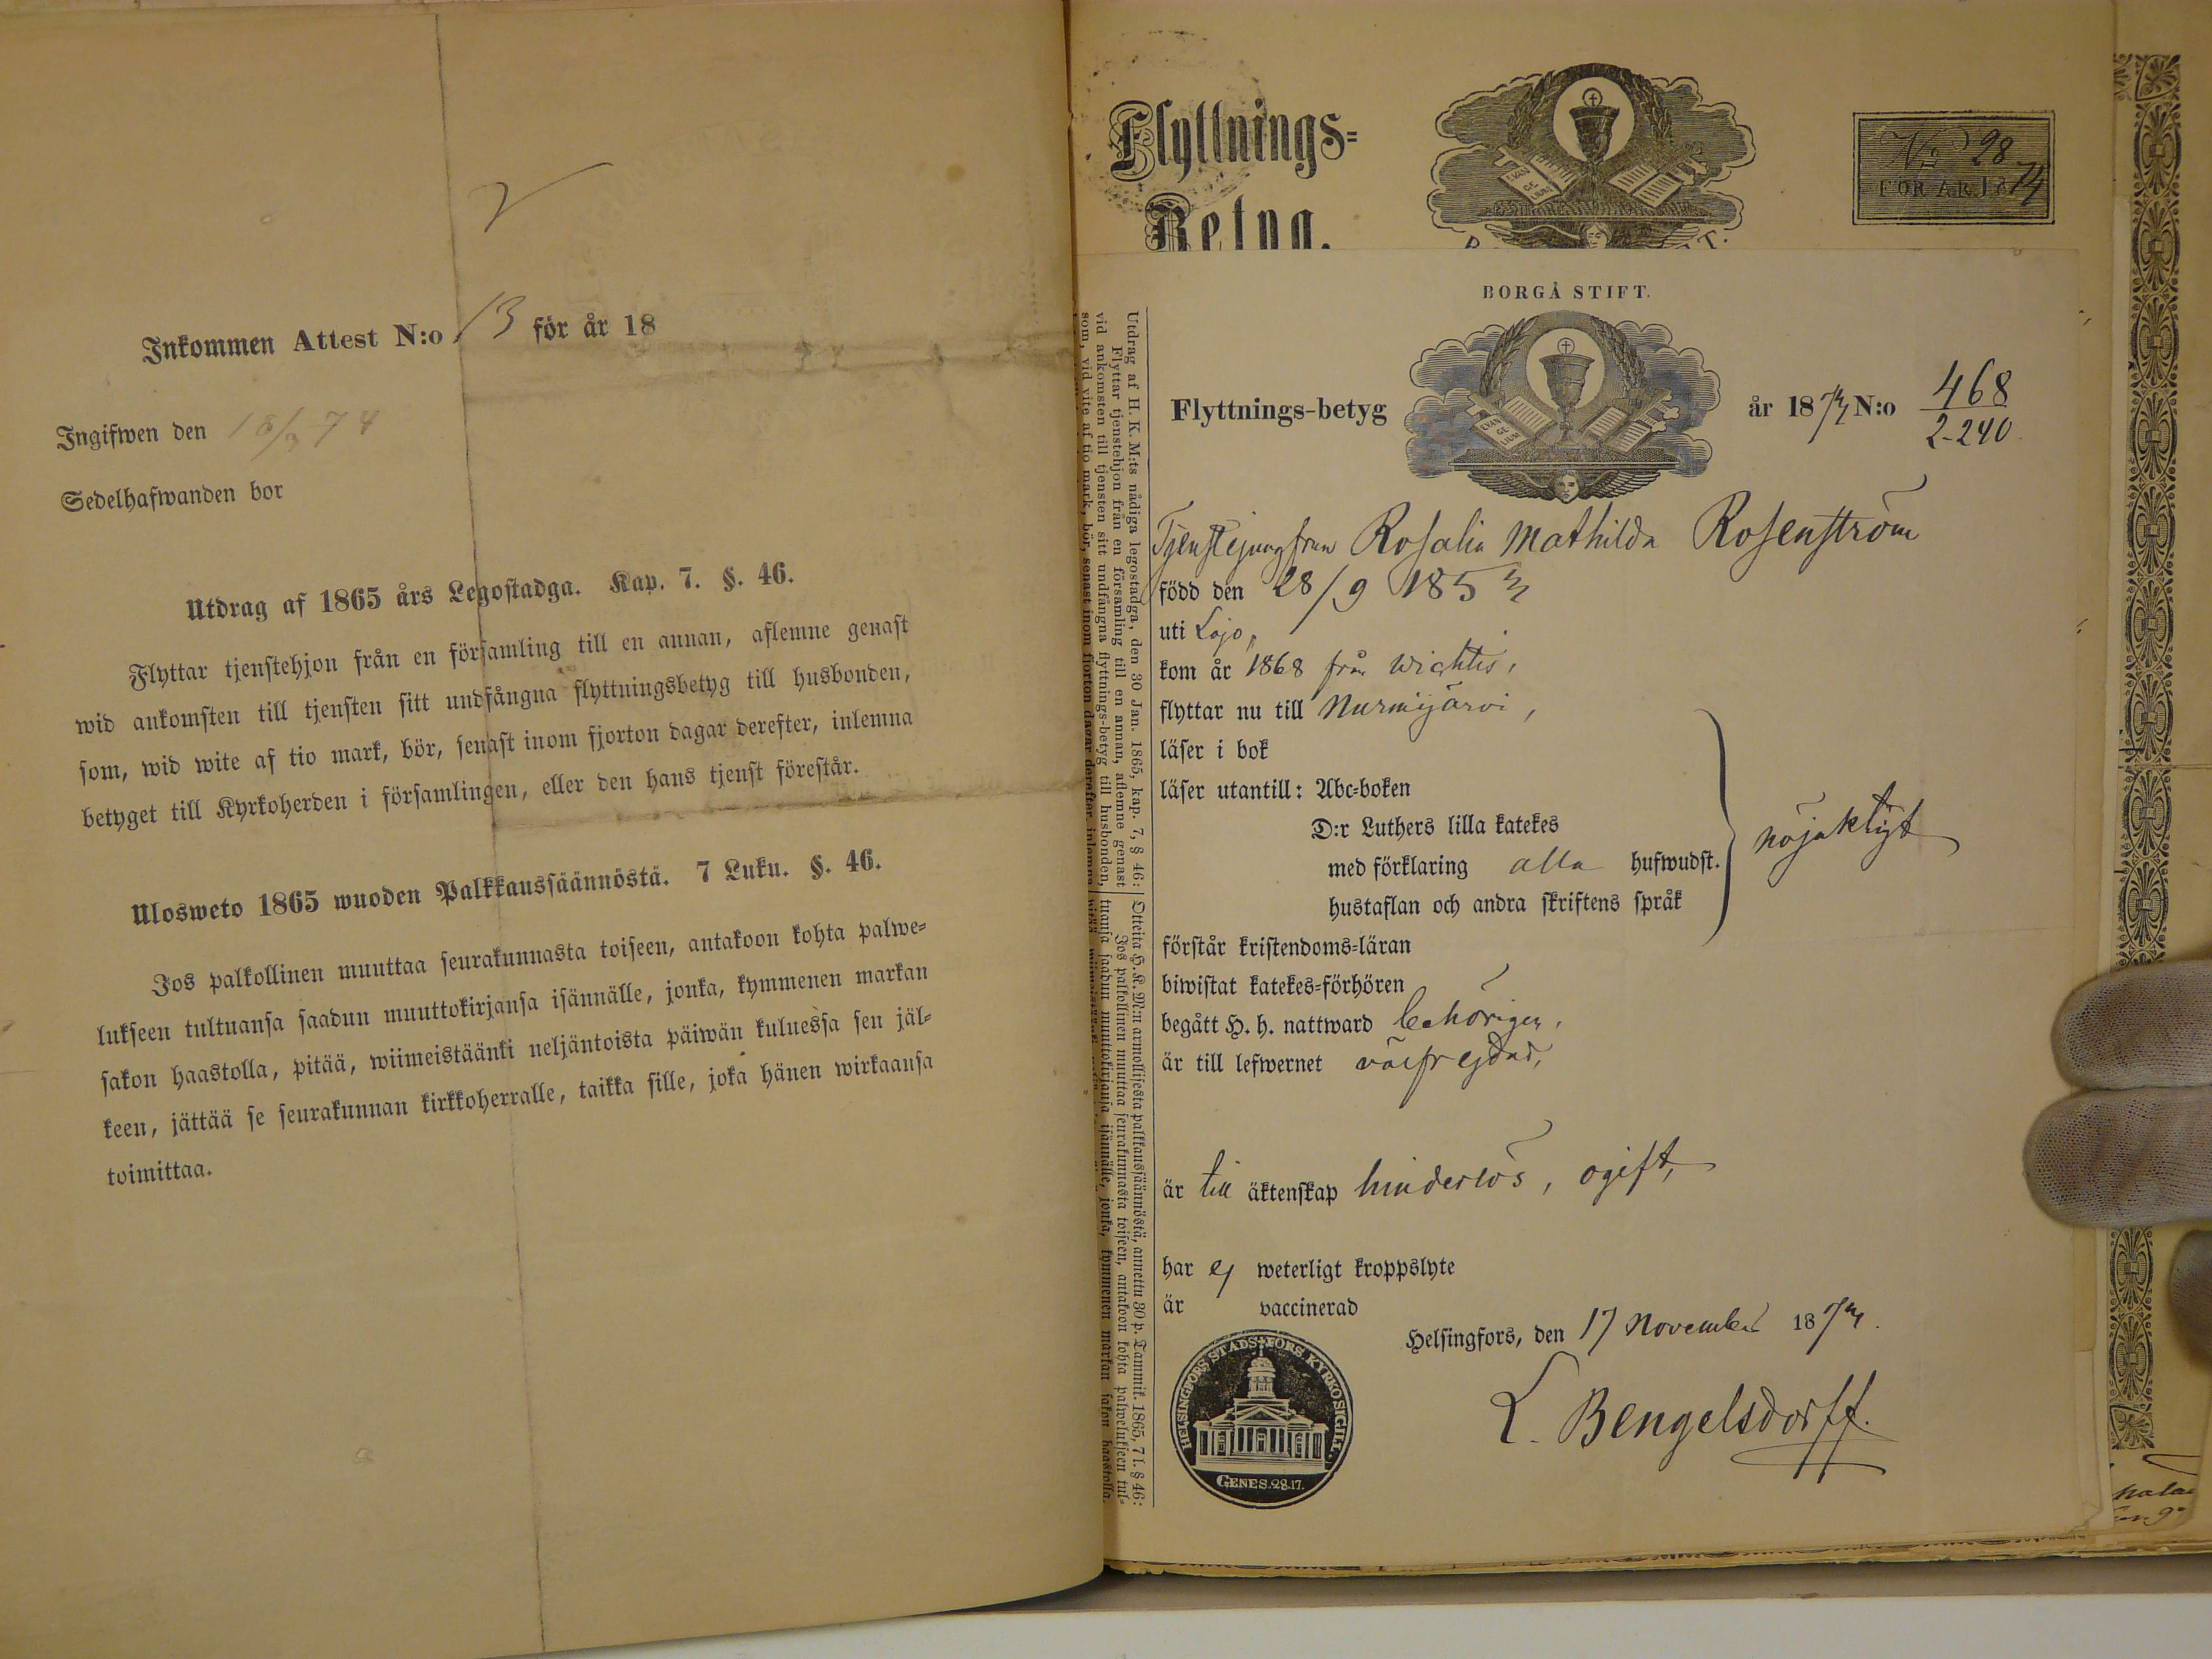 Inkommen Attest N:o 13 för år 18
Ingifwen den 18/3 74
Sedelhafwanden bor
Utdrag af 1865 års Legostadga. Kap. 7. §. 46.
Flyttar tjenstehjon från en församling till en annan, aflemne genast
wid ankomsten till tjensten sitt undfångna flyttningsbetyg till husbonden,
som, wid wite af tio mark, bör, senast inom fjorton dagar derefter, inlemna
betyget till Kyrkoherden i församlingen, eller den hans tjenst förestår.
Ulosweto 1865 wuoden Palkkaussäännöstä. 7 Luku. §. 46.
Jos palkollinen muuttaa seurakunnasta toiseen, antakoon kohta palwe-
lukseen tultuansa saadun muuttokirjansa isännälle, jonka, kymmenen markan
sakon haastolla, pitää, wiimeistäänki neljäntoista päiwän kuluessa sen jäl-
keen, jättää se seurakunnan kirkkoherralle, taikka sille, joka hänen wirkaansa
toimittaa.
Flyttnings-
Betyg.
EVAN
GE
LIUM
No 28
FÖR ÅR 1874
BORGÅ STIFT.
Flyttnings-betyg
EVAN
GE
LIUM
år 18 N:o 468
2-240
Tjenstejungfrun Rosalia Mathilda Rosenström
född den 28/9 185
uti Lojo,
kom år 1868 från Wichtis,
flyttar nu till Nurmijärvi,
läser i bok
läser utantill: Abc-boken
D:r Luthers lilla katekes
med förklaring alla hufwudst.
nöjaktigt
hustaflan och andra skriftens språk
förstår kristendoms-läran
biwistat katekes-förhören
begått H. h. nattward behörigen,
är till lefwernet välfrejdad,
är till äktenskap hinderlös, ogift,
har ej weterligt kroppslyte
är vaccinerad
Helsingfors, den 17 November 18
L. Bengelsdorff.
HELSINGFORS STADS FÖRS. KYRKOSIGILL.
GENES.28.17.
Utdrag af H. K. M:ts nådiga legostadga, den 30 Jan. 1865, kap. 7, § 46:
Flyttar tjenstehjon från en församling till en annan, aflemne genast
vid ankomsten till tjensten sitt undfångna flyttnings-betyg till husbonden,
som, vid vite af tio mark, bör, senast inom fjorton dagar derefter, inlemna
Otteita H. K. M:n armollisesta palkkaussäännöstä, annettu 30 p. Tammik. 1865, 7 l. § 46:
Jos palkollinen muuttaa seurakunnasta toiseen, antakoon kohta palwelukseen tul-
tuansa saadun muuttokirjansa isännälle, jonka, kymmenen markan sakon haastolla,